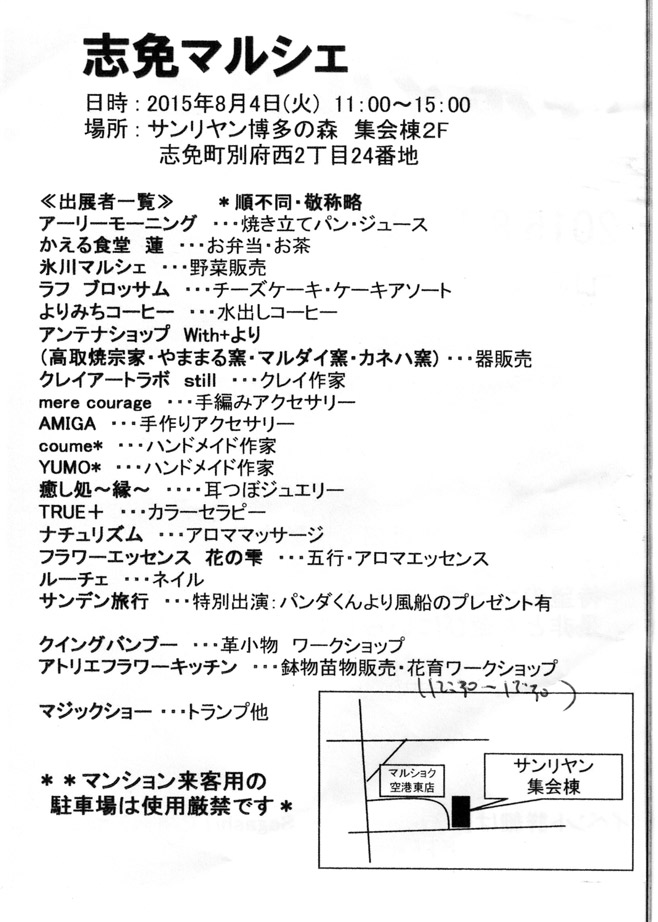 志免マルシェ
日時：2015年8月4日(火) 11:00～15:00
場所：サンリヤン博多の森 集会棟2F
志免町別府西2丁目24番地
≪出展者一覧≫ ＊順不同・敬称略
アーリーモーニング ・・・焼き立てパン・ジュース
かえる食堂 蓮 ・・・お弁当・お茶
氷川マルシェ ・・・野菜販売
ラフ ブロッサム ・・・チーズケーキ・ケーキアソート
よりみちコーヒー ・・・水出しコーヒー
アンテナショップ With+より
(高取焼宗家・やままる窯・マルダイ窯・カネハ窯) ・・・器販売
クレイアートラボ still ・・・クレイ作家
mere courage ・・・手編みアクセサリー
AMIGA ・・・手作りアクセサリー
coume* ・・・ハンドメイド作家
YUMO* ・・・ハンドメイド作家
癒し処～縁～ ・・・・耳つぼジュエリー
TRUE＋ ・・・カラーセラピー
ナチュリズム ・・・アロママッサージ
フラワーエッセンス 花の雫 ・・・五行・アロマエッセンス
ルーチェ ・・・ネイル
サンデン旅行 ・・・特別出演：パンダくんより風船のプレゼント有
クイングバンブー ・・・革小物 ワークショップ
アトリエフラワーキッチン ・・・鉢物苗物販売・花育ワークショップ
マジックショー ・・・トランプ他
＊＊マンション来客用の
駐車場は使用厳禁です＊
マルショク
空港東店
サンリヤン
集会棟